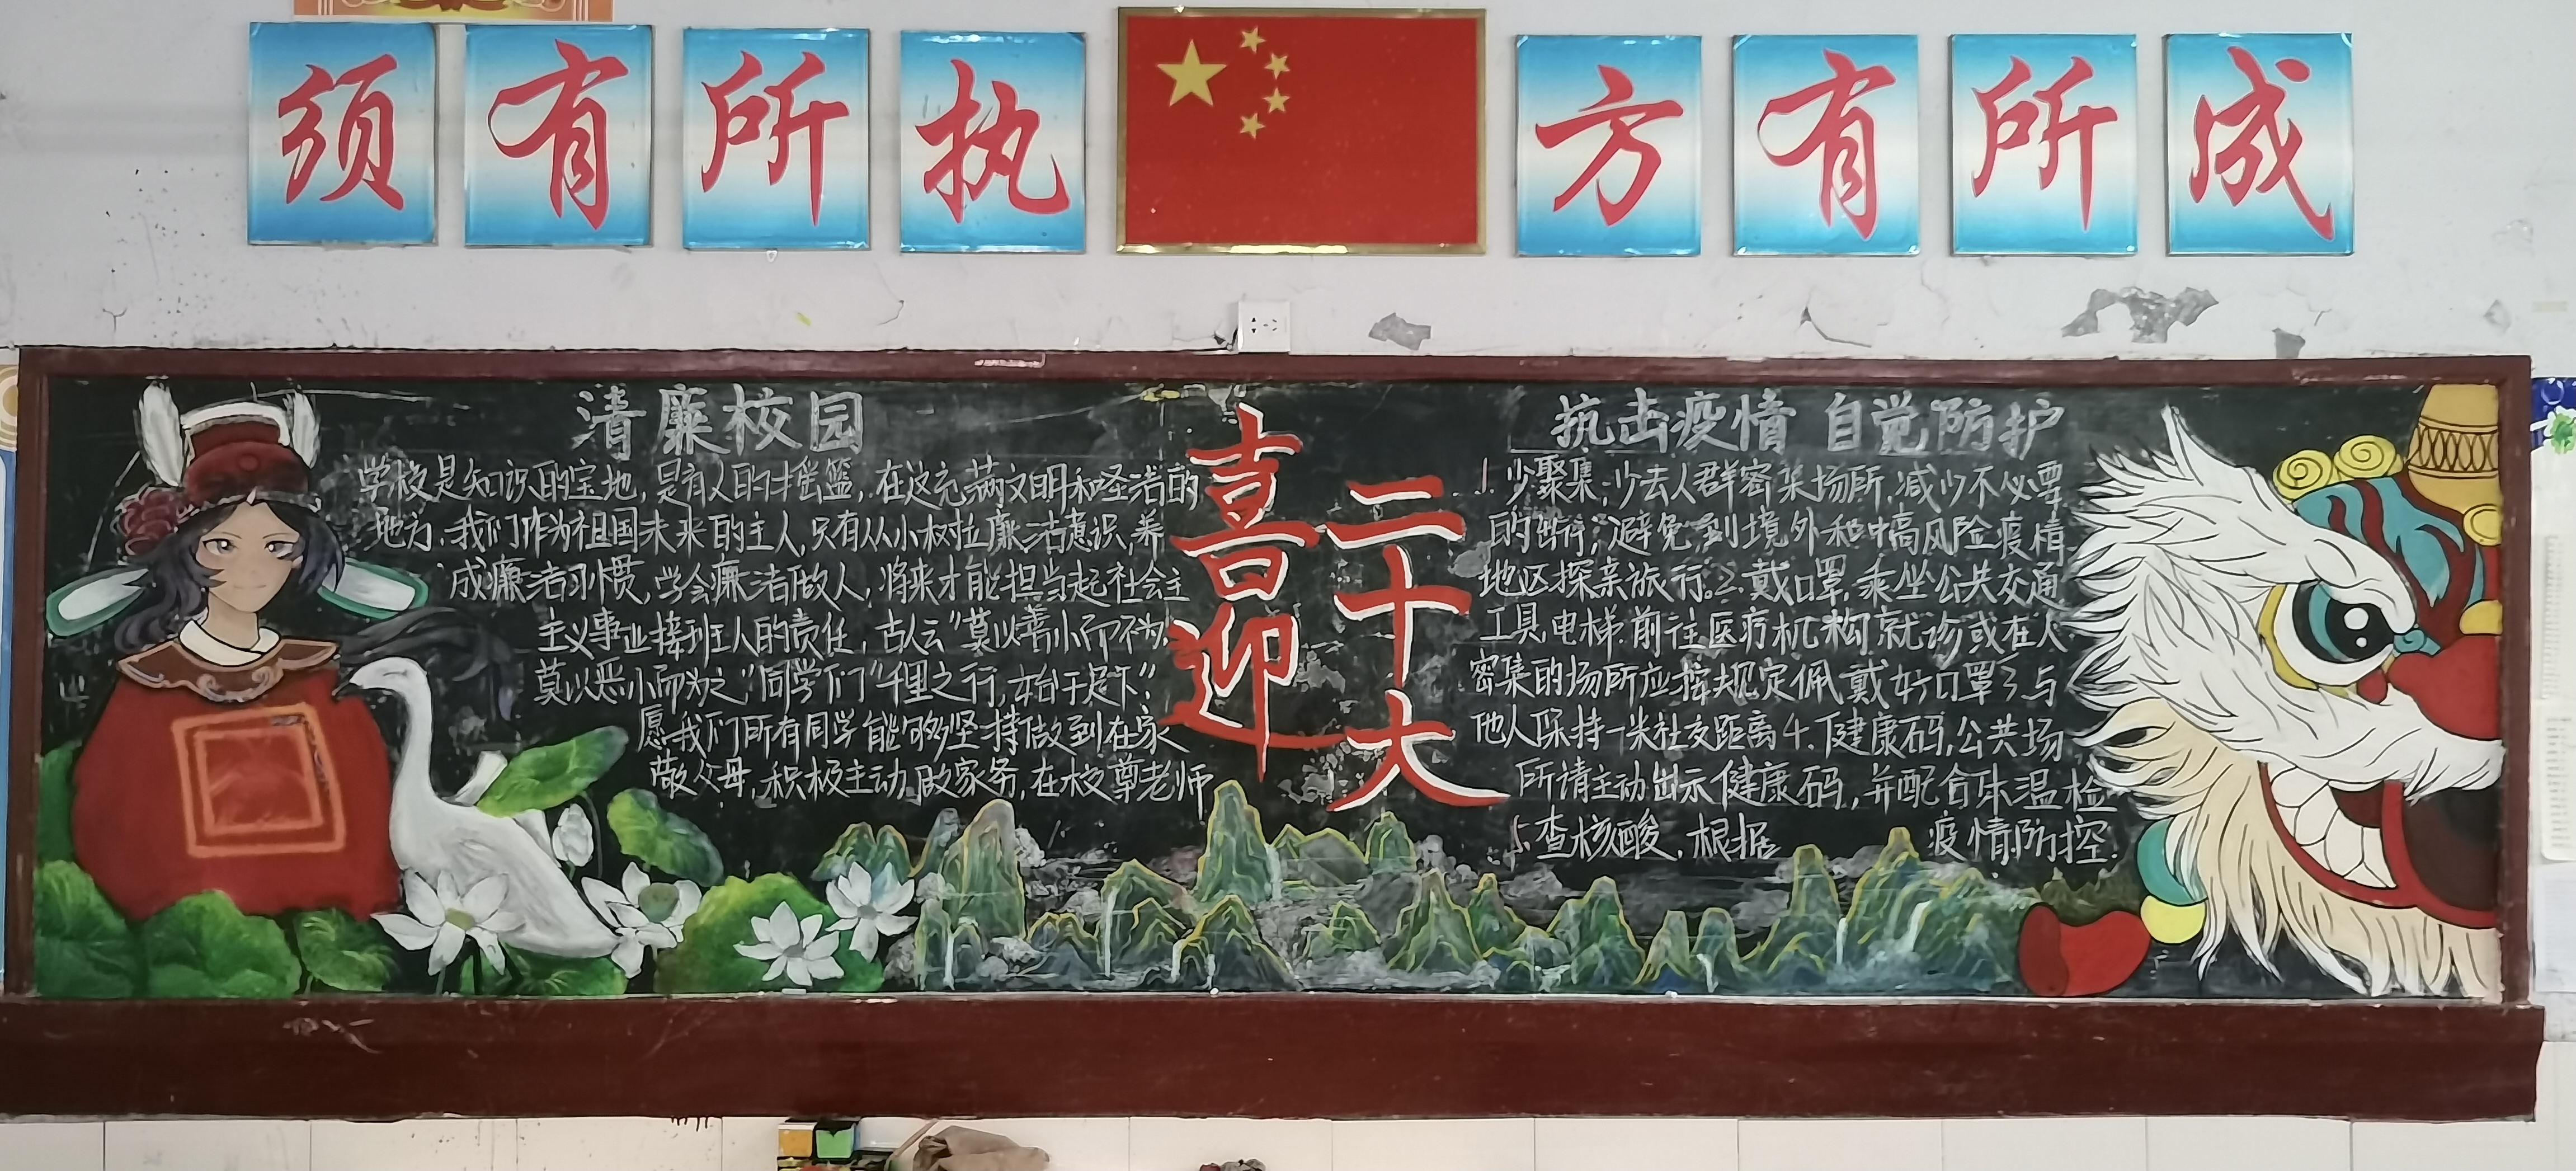 须有所执
方有所成
清廉校园
学校是知识的宝地,是育人的摇篮,在这充满文明和圣洁的
地方,我们作为祖国未来的主人,只有从小树立廉洁意识,养
成廉洁习惯,学会廉洁做人,将来才能担当起社会主
主义事业接班人的责任,古人云"莫以善小而不为,
莫以恶小而为之"同学们"千里之行,始于足下":
愿我们所有同学能够坚持做到在家
敬父母,积极主动做家务,在校尊老师
喜迎
二十大
执击疫情 自觉防护
1.少聚集;少去人群密集场所,减少不必要
的出行;避免到境外和中高风险疫情
地区探亲旅行。2.戴口罩,乘坐公共交通
工具,电梯,前往医疗机构就诊或在人
密集的场所应按规定佩戴好口罩3.与
他人保持一米社交距离4.健康码,公共场
所请主动出示健康码,并配合体温检
5.查核酸,根据 疫情防控.